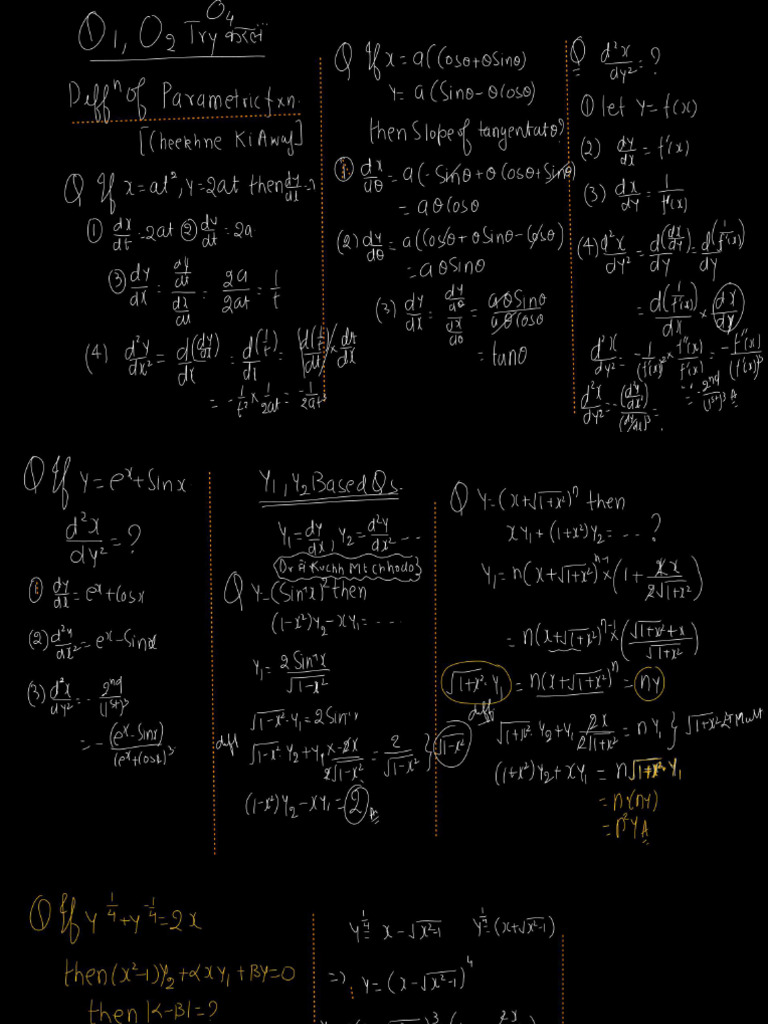 O1, O2 Try करलो
O4
Diffⁿ of Parametric fxn.
[Cheekhne Ki Awaj]
Q If x = at², y = 2at then dy/dx = ?
① dx/dt = 2at ② dy/dt = 2a
③ dy/dx = (dy/dt)/(dx/dt) = 2a/2at = 1/t
(4) d²y/dx² = d(dy/dx)/dx = d(1/t)/dx = d(1/t)/dt × dt/dx
= -1/t² × 1/2at = -1/2at³
Q If x = a(Cosθ + θSinθ)
y = a(Sinθ - θCosθ)
then Slope of tangent at θ?
① dx/dθ = a(-Sinθ + θCosθ + Sinθ)
= aθCosθ
(2) dy/dθ = a(Cosθ + θSinθ - Cosθ)
= aθSinθ
(3) dy/dx = (dy/dθ)/(dx/dθ) = aθSinθ/aθCosθ
= tanθ
Q d²x/dy² = ?
① let y = f(x)
(2) dy/dx = f'(x)
(3) dx/dy = 1/f'(x)
(4) d²x/dy² = d(dx/dy)/dy = d(1/f'(x))/dy
= d(1/f'(x))/dx × dx/dy
d²x/dy² = -1/(f'(x))² × f''(x)/f'(x) = -f''(x)/(f'(x))³
d²x/dy² = -(d²y/dx²)/(dy/dx)³ = -2nd/(1st)³ A
Q If y = eˣ + Sinx
d²x/dy² = ?
① dy/dx = eˣ + Cosx
(2) d²y/dx² = eˣ - Sinx
(3) d²x/dy² = -2nd/(1st)³
= -(eˣ - Sinx)/(eˣ + Cosx)³
Y₁, Y₂ Based Qs.
Y₁ = dy/dx, Y₂ = d²y/dx² ...
Dr म Kuchh Mt Chhodo
Q Y = (Sin⁻¹x)² then
(1-x²)Y₂ - xY₁ = ....
Y₁ = 2Sin⁻¹x/√(1-x²)
√(1-x²)·Y₁ = 2Sin⁻¹x
diff √(1-x²) Y₂ + Y₁ × -2x/2√(1-x²) = 2/√(1-x²) } √(1-x²)
(1-x²)Y₂ - xY₁ = 2 A
Q Y = (x+√(1+x²))ⁿ then
xY₁ + (1+x²)Y₂ = ...?
Y₁ = n(x+√(1+x²))ⁿ⁻¹ × (1 + 2x/2√(1+x²))
= n(x+√(1+x²))ⁿ⁻¹ × ((√(1+x²)+x)/√(1+x²))
√(1+x²)·Y₁ = n(x+√(1+x²))ⁿ = nY
diff
√(1+x²) Y₂ + Y₁ 2x/2√(1+x²) = nY₁ } √(1+x²) से mult
(1+x²)Y₂ + xY₁ = n√(1+x²)·Y₁
= n(nY)
= n²Y A
Q If y^(1/4) + y^(-1/4) = 2x
then (x²-1)Y₂ + αxY₁ + βY = 0
then |α-β| = ?
y^(1/4) = x - √(x²-1) y^(1/4) = (x+√(x²-1))
⇒ Y = (x-√(x²-1))⁴